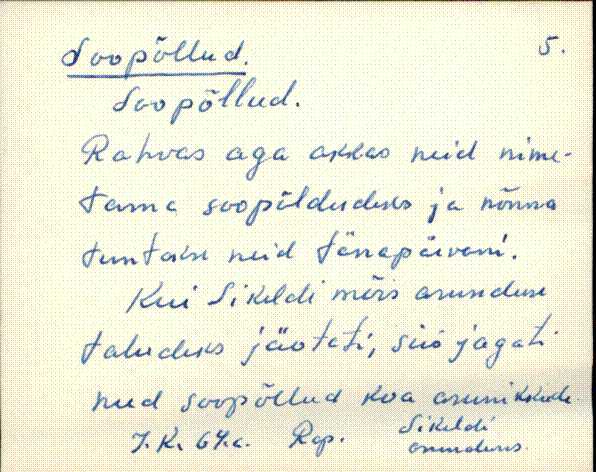 Soopõllud. 5.
Soopõllud.
Rahvas aga akkas neid nime-
tama soopõldudeks ja nõnna
tuntakse neid tänapäevani.
Kui Sikeldi mõis asunduse
taludeks jäoteti, siis jagati
need soopõllud koa asunikkude.
J.K. 64.a. Rap. Sikeldi
asunduses.